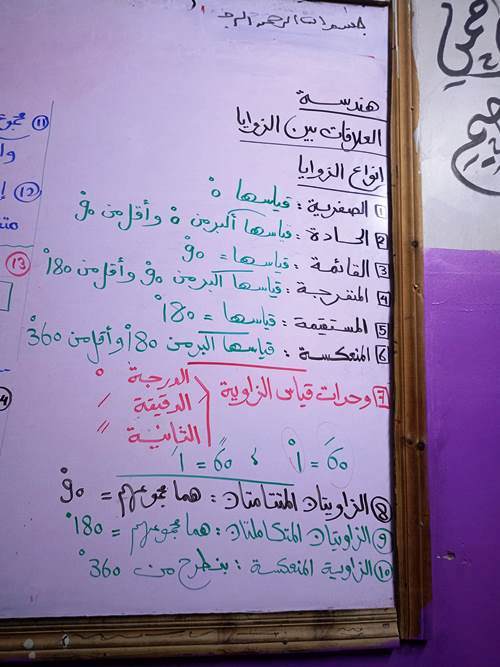 بسم الله الرحمن الرحيم
هندسة
العلاقات بين الزوايا
انواع الزوايا
1 الصفرية : قياسها 0°
2 الحادة : قياسها أكبر من 0° وأقل من 90°
3 القائمة : قياسها = 90°
4 المنفرجة : قياسها اكبر من 90° وأقل من 180°
5 المستقيمة : قياسها = 180°
6 المنعكسة : قياسها اكبر من 180° وأقل من 360°
7 وحدات قياس الزاوية
الدرجة °
الدقيقة ′
الثانية ″
60′ = 1° ، 60″ = 1′
8 الزاويتان المتتامتان : هما مجموعهم = 90°
9 الزاويتان المتكاملتان : هما مجموعهم = 180°
10 الزاوية المنعكسة : بنطرح من 360°
11
12
13